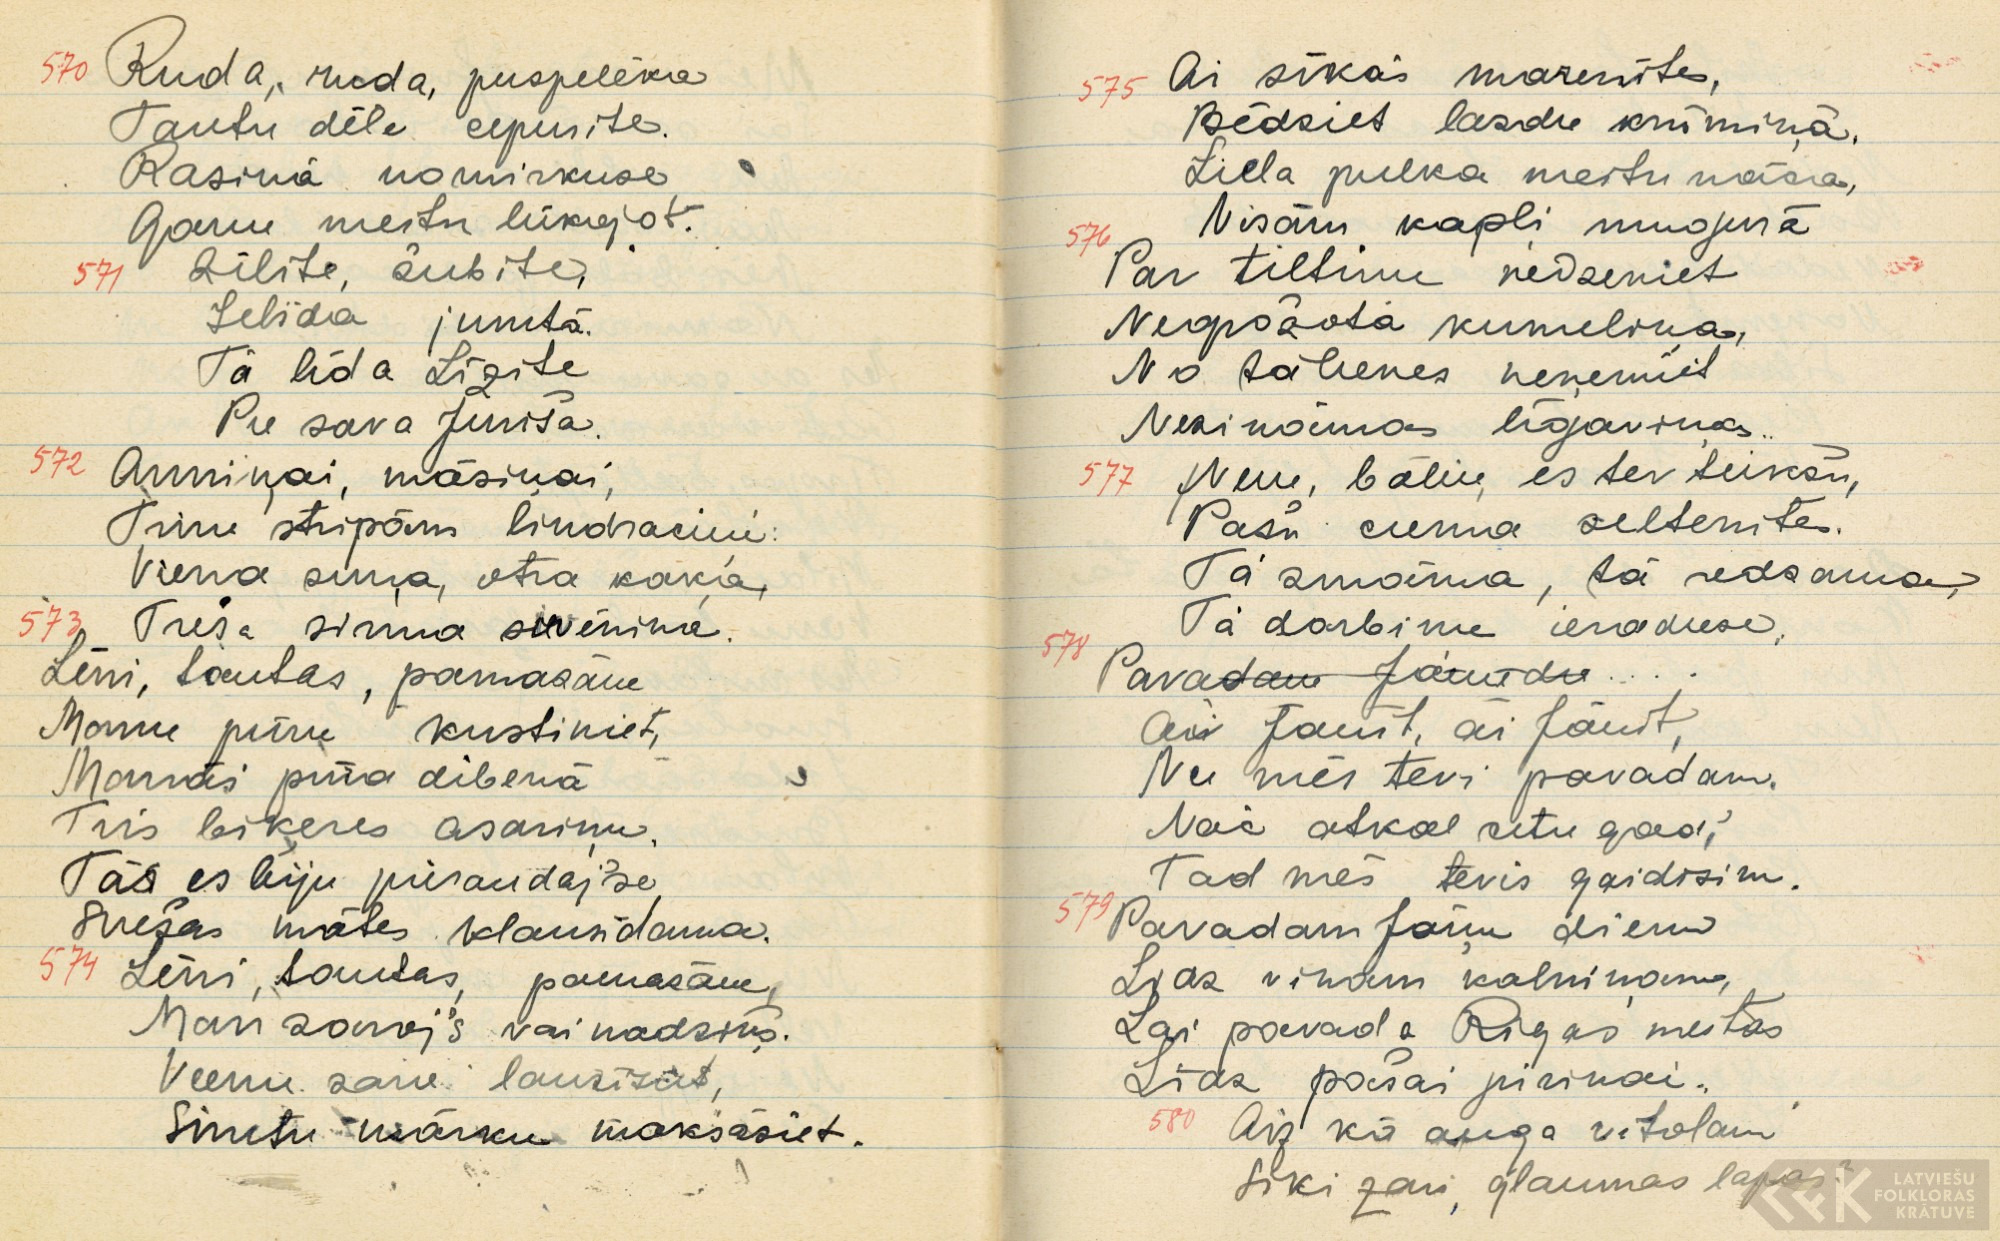 570 Ruda, ruda, puspelēka
Tautu dēla cepurite.
Rasinā nomirkuse
Ganu meitu lūkojot.
571 Zīlite, žubite,
Ielīda jumtā.
Tā līda Līzite
Pie sava Jurīša.
572 Anniņai, māsiņai,
Trim stripām lindraciņi:
Viena suņa, otra kaķa,
573 Treša sirma suvēniņa.
Lēni, tautas, pamazām
Manu pūru kustiniet,
Manas pūra dibenā
Trīs biķeres asariņu.
Tās es biju pieraudaj'se
Svešas mātes klausīdama.
574 Lēni, tautas, pamazām,
Man zaroj's vainadziņš.
Vienu zaru lauzīsat,
Simtu mārku maksāsiet.
575 Ai sīkās mazenītes,
Bēdziet lazdu krūmiņā.
Liela pulka meitu nāca,
Visām kapļi mugurā
576 Par tiltiņu nedzeniet
Neapšota kumeliņa,
No tālienes neņemiet
Nezinamas līgaviņas..
577 Ņem, bāliņ, es tev teikšu,
Pašu ciema zeltenītes.
Tā zināma, tā redzama,
Tā darbiņu ieraduse.
578 Pavadam Jānīdu .....
Ai Jānīt, ai Jānīt,
Nu mēs tevi pavadam.
Nāc atkal citu gad',
Tad mēs tevis gaidīsim.
579 Pavadam Jāņu dienu
Līdz viņam kalniņam,
Lai pavada Rīgas meitas
Līdz pašai jūriņai.
580 Aiz kā auga vītolam
Sīki zari, glaumas lapas?
LATVIEŠU
FOLKLORAS
KRĀTUVE